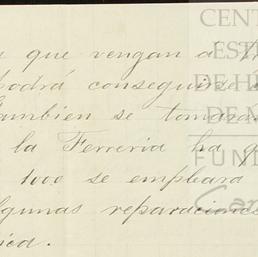 que vengan a
podrá conseguirse
Tambien se tomará
la Ferreria ha
1000 se empleará
algunas reparaciones
CENT
EST
DE H
DE
FUND
Car